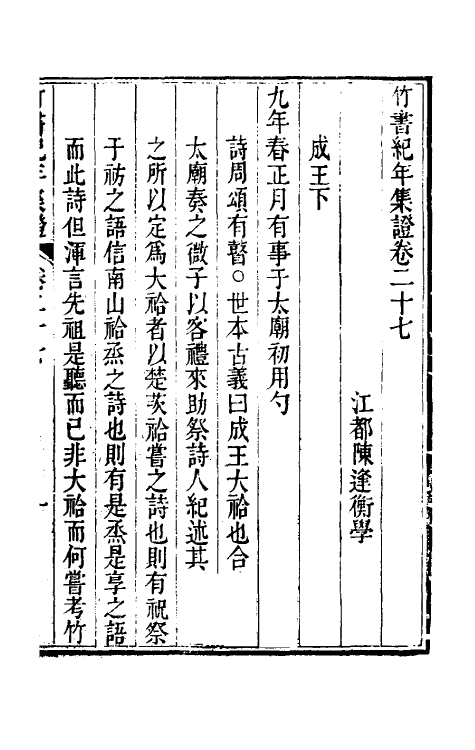 竹書紀年集證卷二十七
江都陳逢衡學
成王下
九年春正月有事于太廟初用勺
詩周頌有瞽○世本古義曰成王大祫也合
太廟奏之微子以客禮來助祭詩人紀述其
之所以定爲大祫者以楚茨祫嘗之詩也則有祝祭
于祊之語信南山祫烝之詩也則有是烝是享之語
而此詩但渾言先祖是聽而已非大祫而何嘗考竹
竹書紀年集證 卷二十七 一